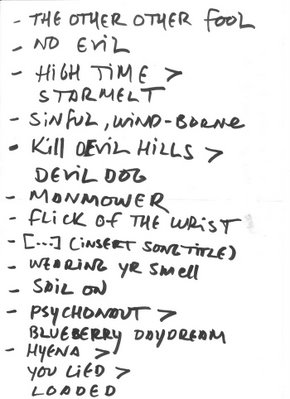 - THE OTHER OTHER FOOL
- NO EVIL
- HIGH TIME >
STARMELT
- SINFUL, WIND-BORNE
- Kill DEVIL HILLS >
DEVIL DOG
- MONMOWER
- FLICK OF THE WRIST
- [...] (INSERT SONG TITLE)
- WEARING YR SMELL
- SAIL ON
- PSYCHONAUT >
BLUEBERRY DAYDREAM
- HYENA >
YOU LIED >
LOADED